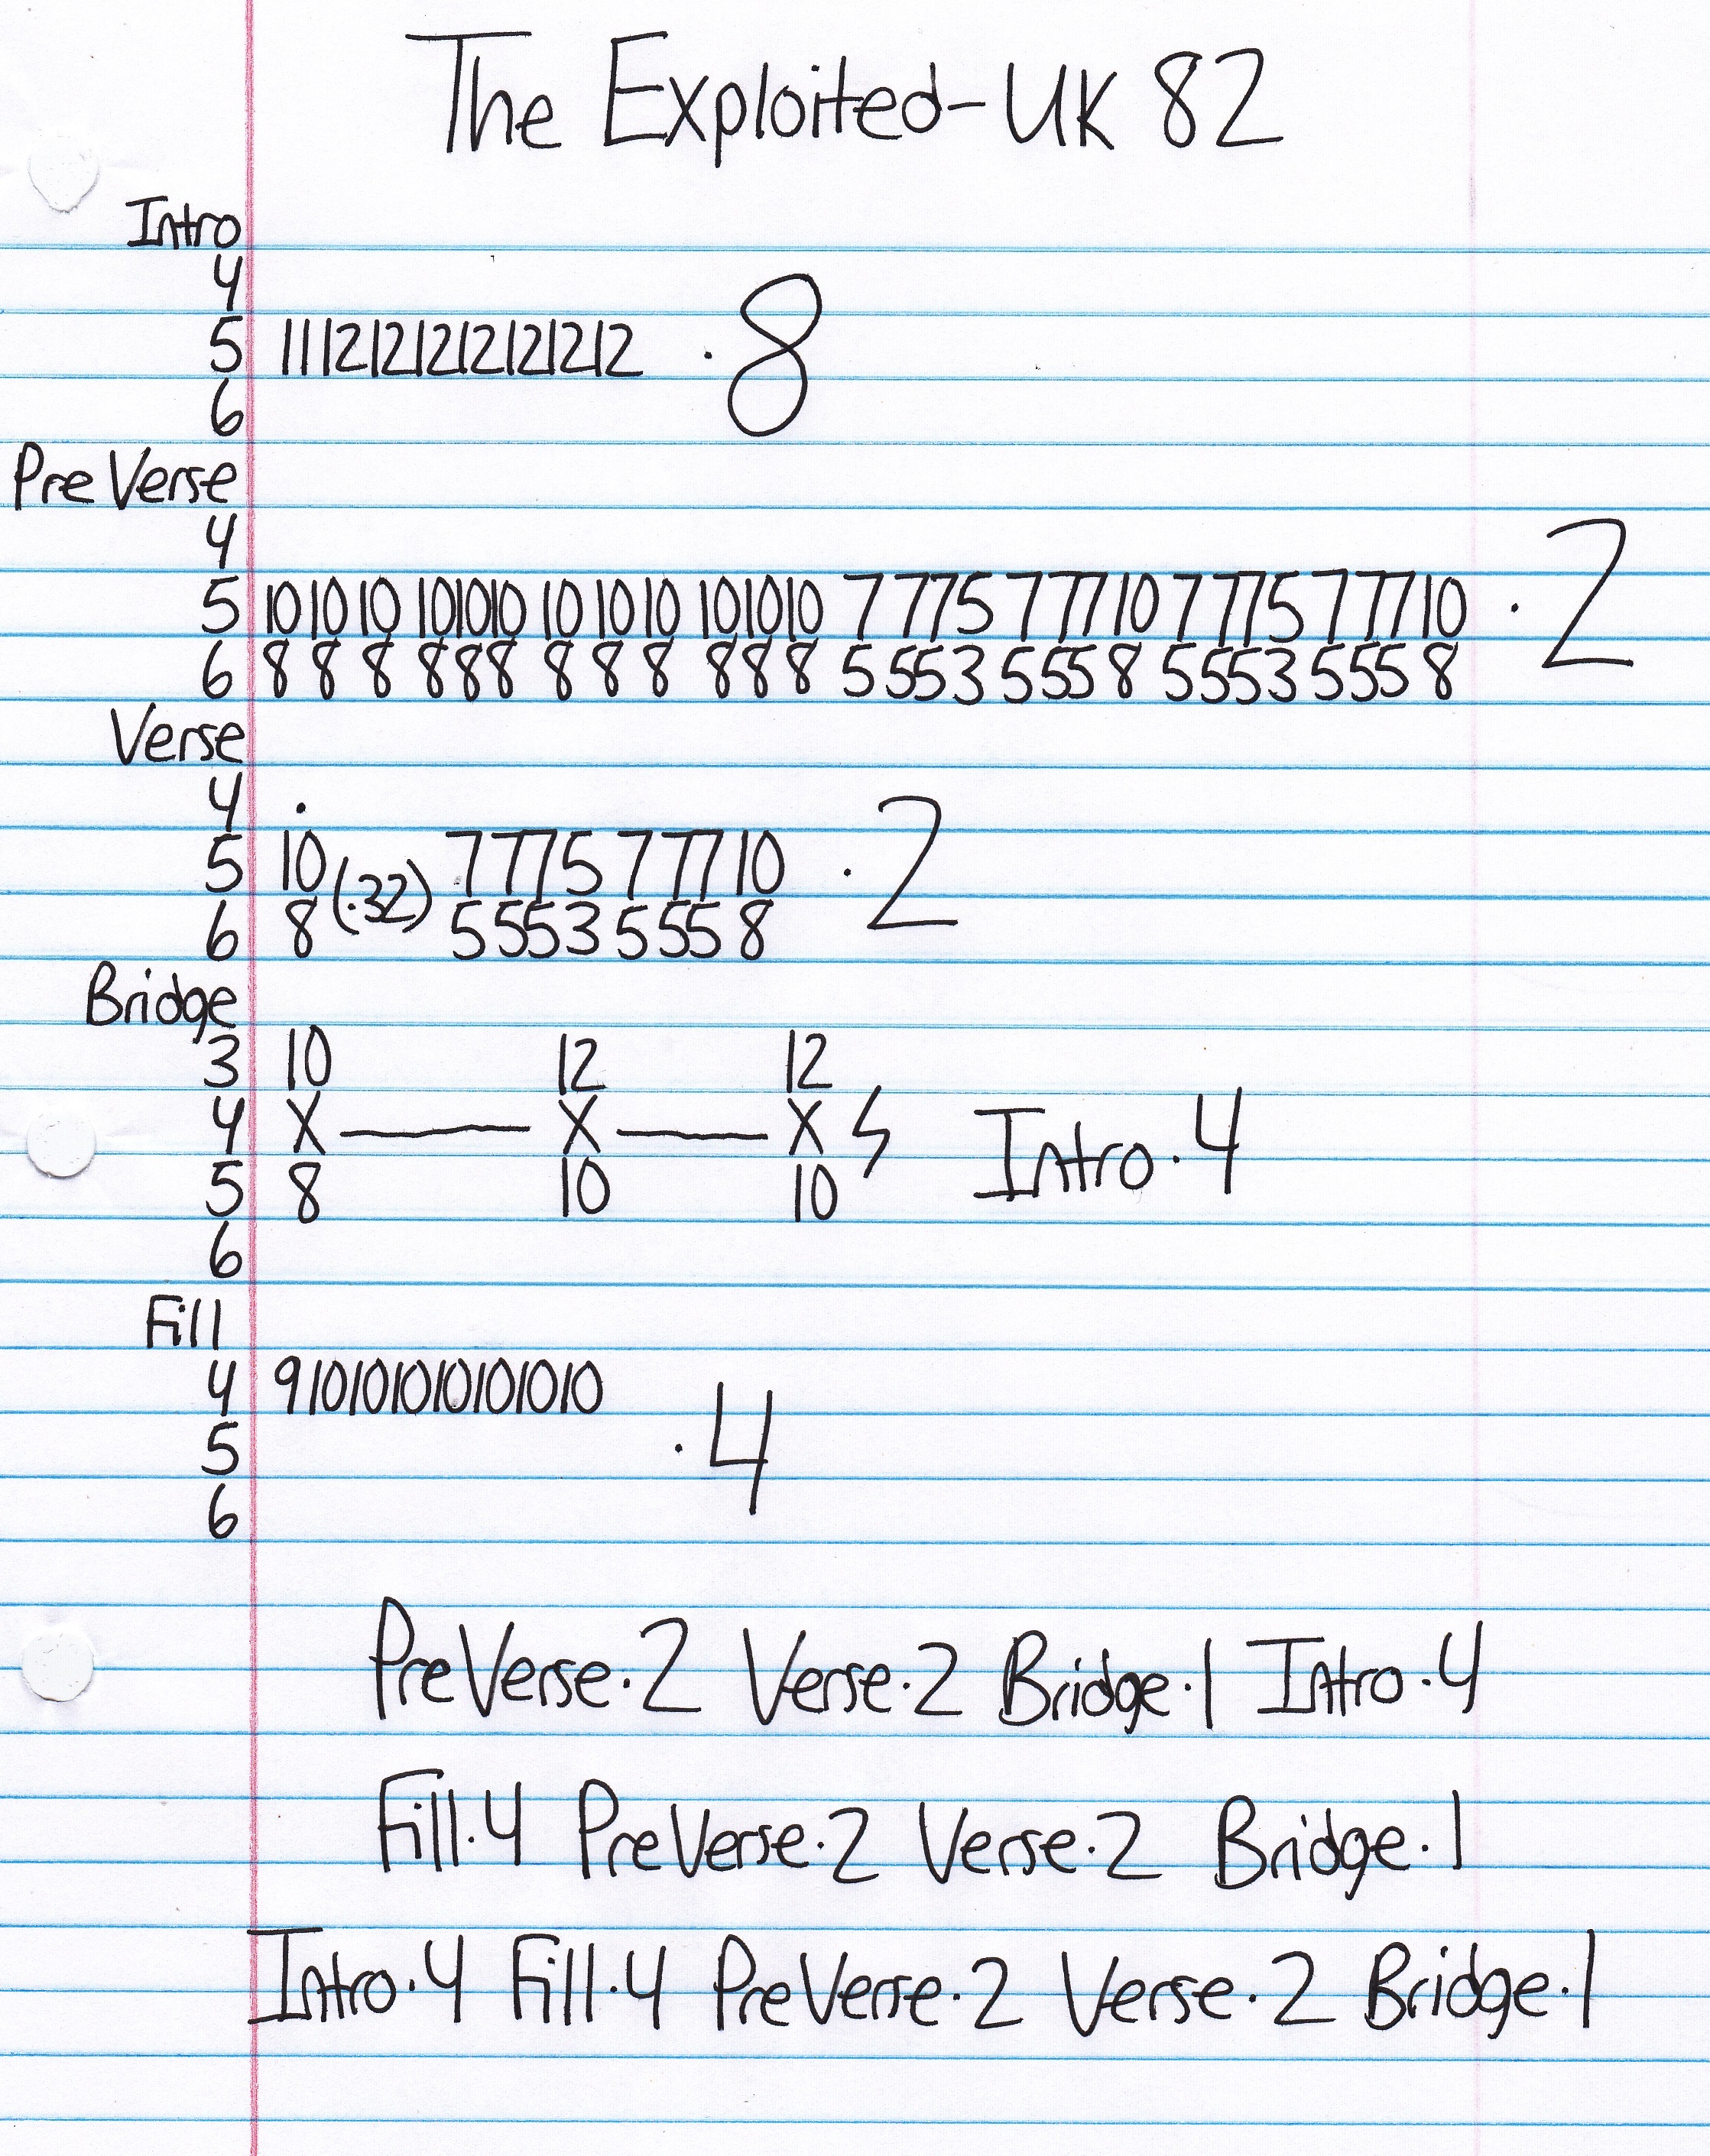 The Exploited-UK 82
Intro
4
5 11 12 12 12 12 12 12 12 · 8
6
Pre Verse
4
5 10 10 10 10 10 10 10 10 10 10 10 10 7 7 7 5 7 7 7 10 7 7 7 5 7 7 7 10 · 2
6 8 8 8 8 8 8 8 8 8 8 8 8 5 5 5 3 5 5 5 8 5 5 5 3 5 5 5 8
Verse
4 ·
5 10 (·32) 7 7 7 5 7 7 7 10 · 2
6 8 5 5 5 3 5 5 5 8
Bridge
3 10 12 12
4 X — X — X Intro·4
5 8 10 10
6
Fill
4 9 10 10 10 10 10 10 10
5 · 4
6
Pre Verse·2 Verse·2 Bridge·1 Intro·4
Fill·4 Pre Verse·2 Verse·2 Bridge·1
Intro·4 Fill·4 Pre Verse·2 Verse·2 Bridge·1